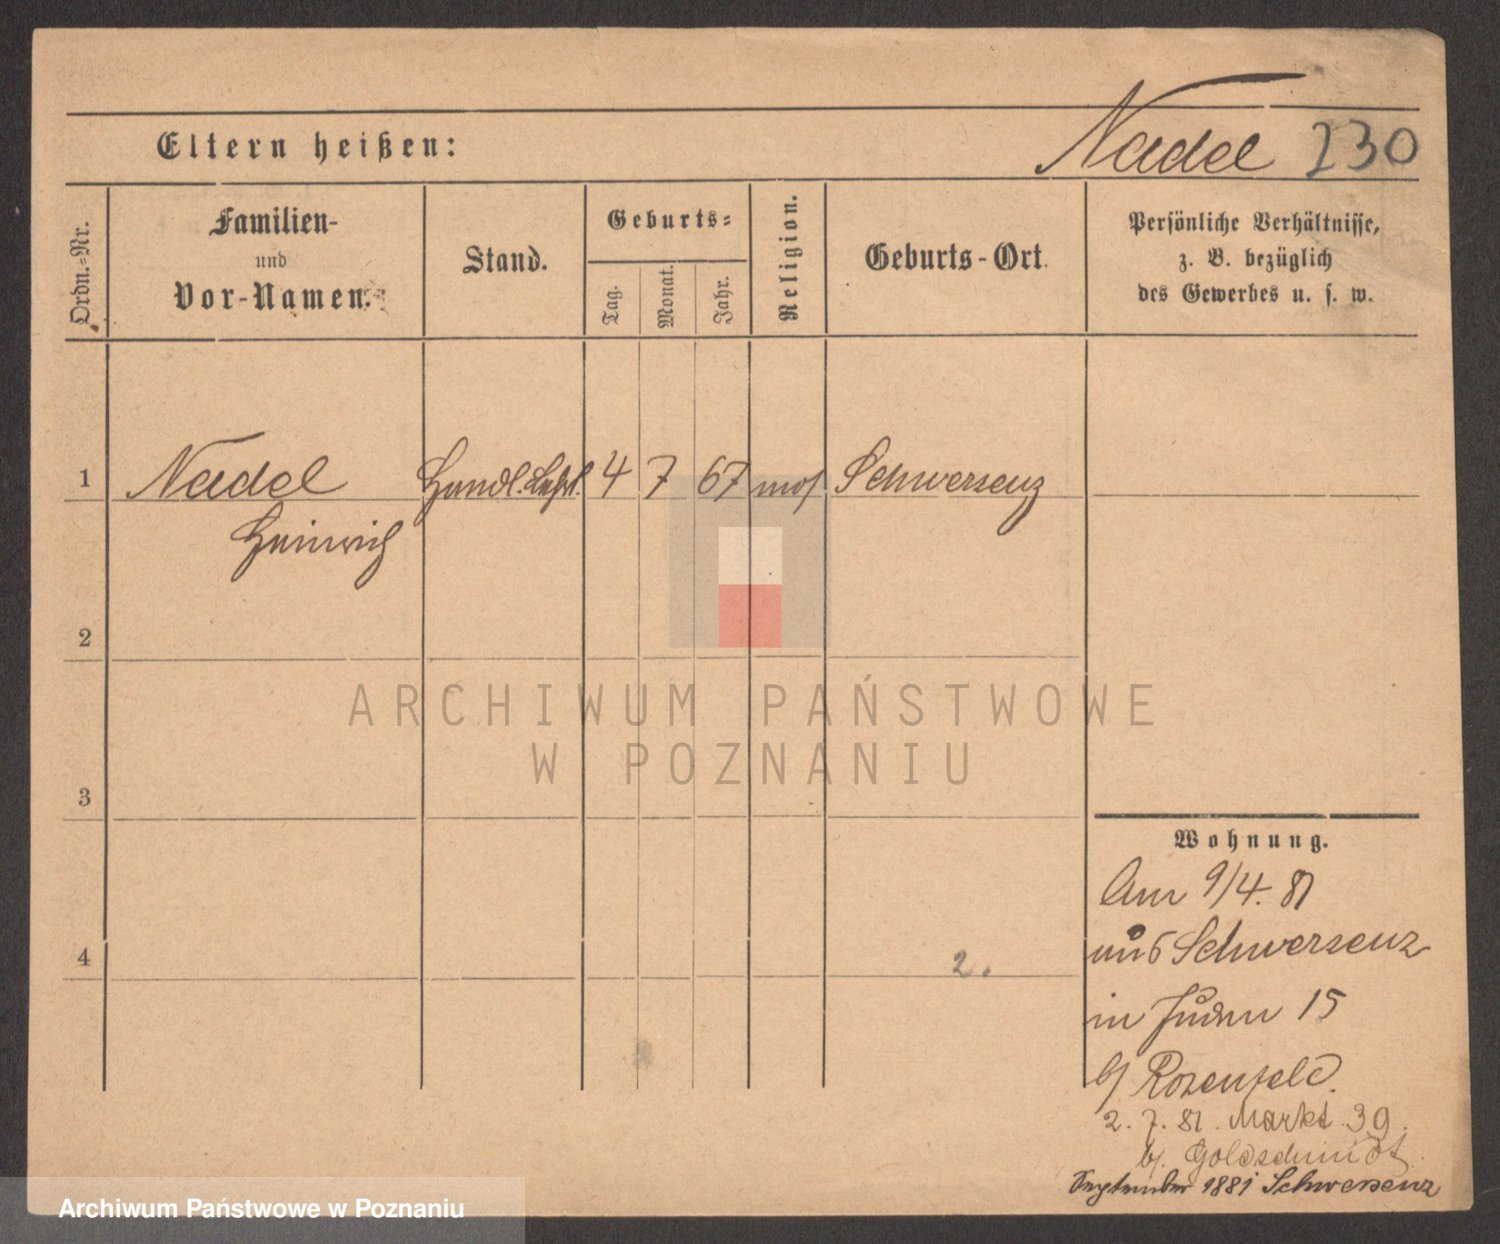 Eltern heißen:
Nadel 230
Ordn.-Nr.
Familien-
und
Vor-Namen.
Stand.
Geburts-
Tag.
Monat.
Jahr.
Religion.
Geburts-Ort.
Persönliche Verhältnisse,
z. B. bezüglich
des Gewerbes u. s. w.
1 Nadel Handl. Lehrl. 4 7 67 mos Schwersenz
Heinrich
2
3
4
2.
Wohnung.
Am 9/4. 81
aus Schwersenz
in Juden 15
b/ Rosenfeld.
2. 7. 81. Markt 39.
b. Goldschmidt.
September 1881 Schwersenz
ARCHIWUM PAŃSTWOWE
W POZNANIU
Archiwum Państwowe w Poznaniu